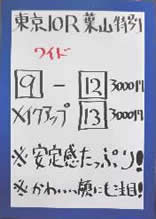 東京10R 葉山特別
ワイド
9 - 12 3000円
メイクアップ 13 3000円
※ 安定感たっぷり!
※ かわいい顔にも注目!